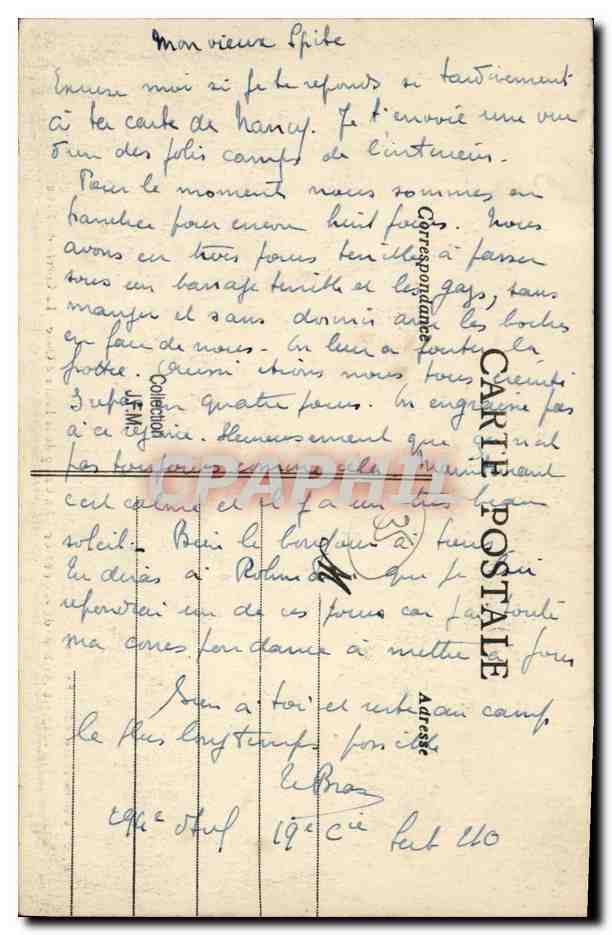 Mon vieux Spite
Excuse moi si je te reponds si tardivement
à ta carte de Nancy. Je t'envoie une vue
d'un des jolis camps de l'interieur.
Pour le moment nous sommes en
tranchée pour encore huit jours. Nous
avons eu trois jours terrible à passer
sous un barrage terrible et les gaz, sans
manger et sans dormir avec les boches
en face de nous. On leur a foutu la
frottée. Aussi etions nous tous
3 repas en quatre jours. On engraine pas
à ce regime. Heureusement que
pas toujours comme cela. Maintenant
c'est calme et il y a un très beau
soleil. Bien le bonjour à tous
Tu diras à que je lui
repondrai un de ces jours car j'ai toute
ma correspondance à mettre à jour
Bien à toi et reste au camp
le plus longtemps possible
Le Bras
294e d'Inf 19e Cie Sect 210
Correspondance
CARTE POSTALE
Adresse
Collection
J.F.M.
35
CPAPHIL